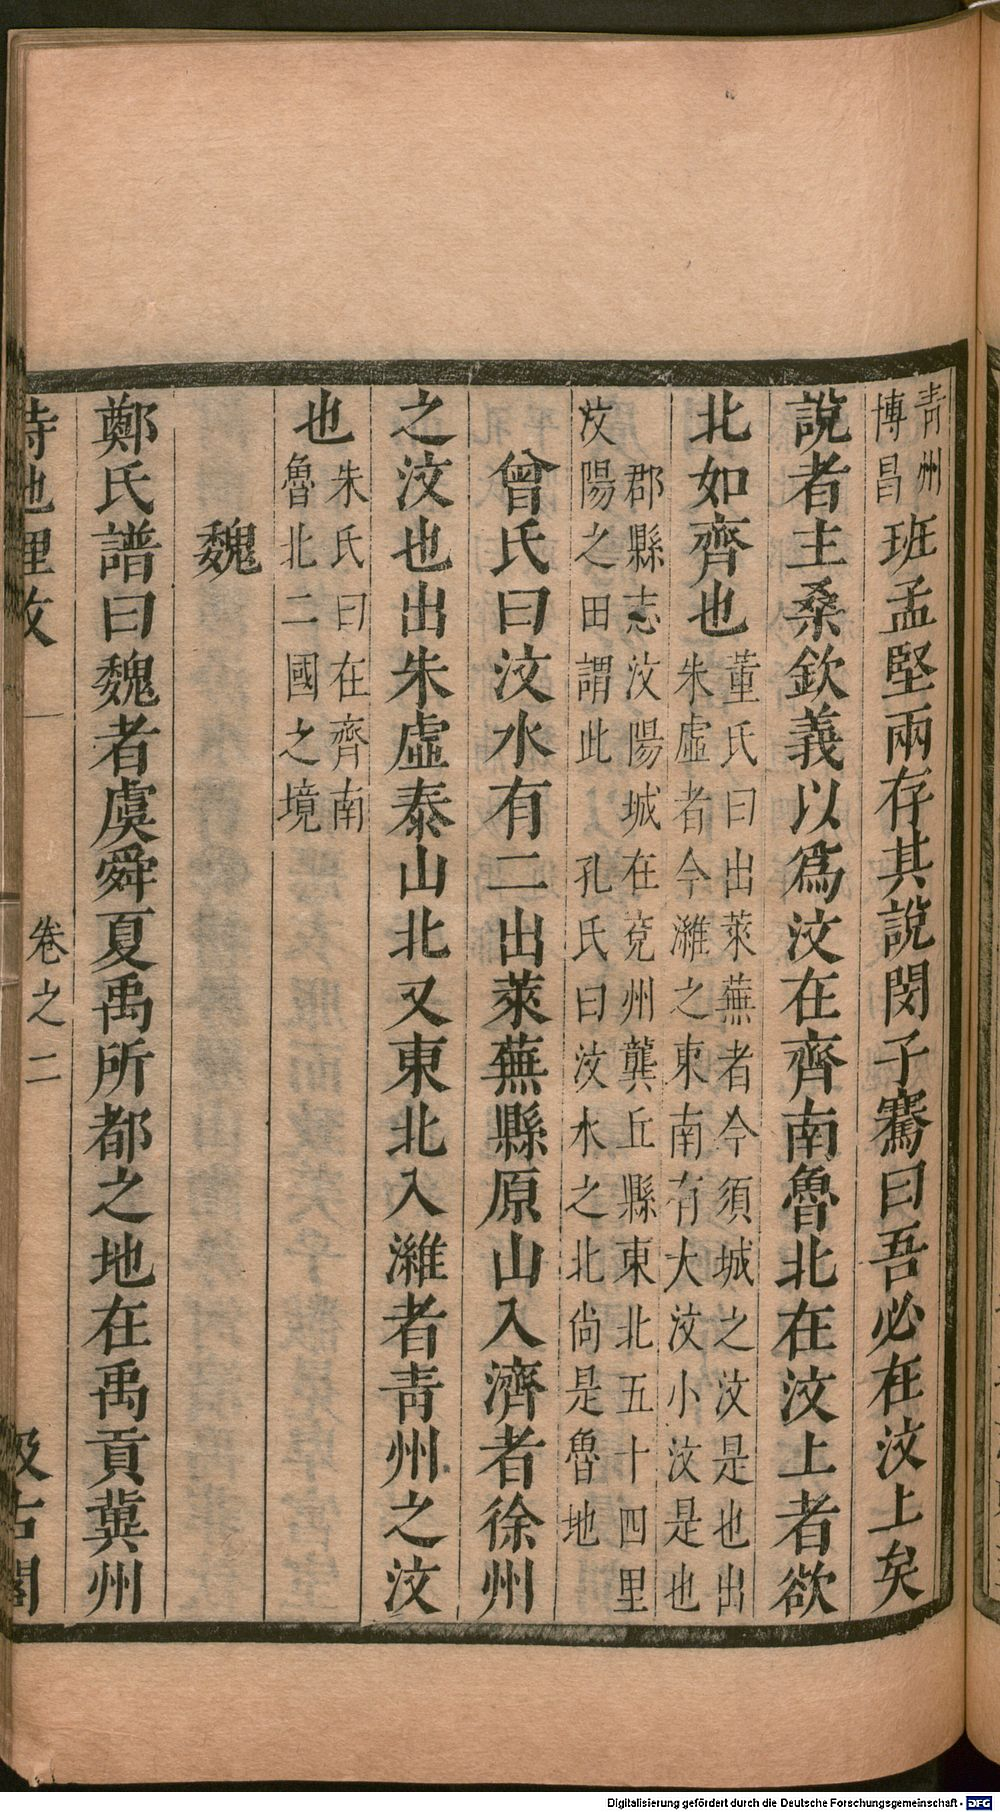 青州
博昌
班孟堅兩存其說閔子騫曰吾必在汶上矣
說者主桑欽義以爲汶在齊南魯北在汶上者欲
北如齊也
董氏曰出萊蕪者今須城之汶是也出
朱虛者今濰之東南有大汶小汶是也
郡縣志汶陽城在兗州龔丘縣東北五十四里
汶陽之田謂此　孔氏曰汶水之北尚是魯地
曾氏曰汶水有二出萊蕪縣原山入濟者徐州
之汶也出朱虛泰山北又東北入濰者青州之汶
也
朱氏曰在齊南
魯北二國之境
魏
鄭氏譜曰魏者虞舜夏禹所都之地在禹貢冀州
詩地理攷　卷之二　汲古閣
Digitalisierung gefördert durch die Deutsche Forschungsgemeinschaft - DFG